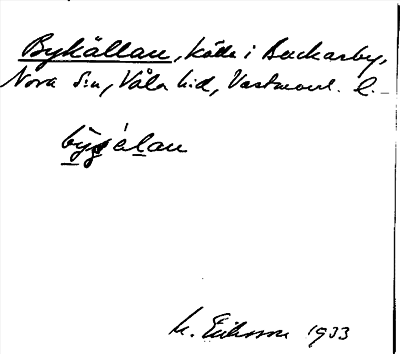 Bykällan, källa i Buckarby,
Nora Sn, Våla hd, Vastmanl. l.
bȳꞔélan
M. Eriksson 1933